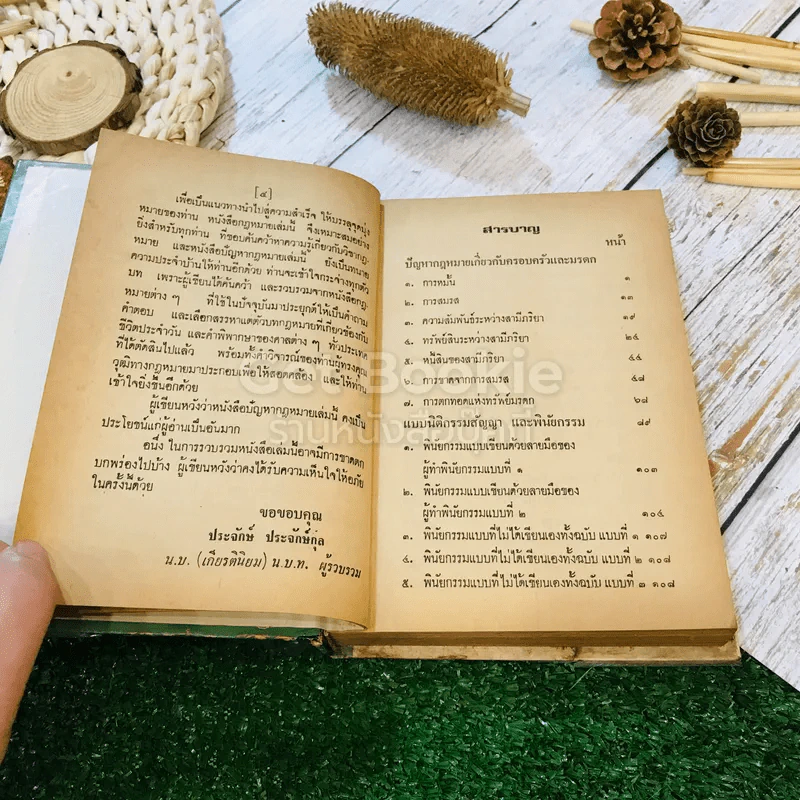 [๔]
เพื่อเป็นแนวทางนำไปสู่ความสำเร็จ ให้บรรลุจุดมุ่ง
หมายของท่าน หนังสือกฎหมายเล่มนี้ จึงเหมาะสมอย่าง
ยิ่งสำหรับทุกท่าน ที่ชอบค้นคว้าหาความรู้เกี่ยวกับวิชากฎ-
หมาย และหนังสือปัญหากฎหมายเล่มนี้ ยังเป็นทนาย
ความประจำบ้านให้ท่านอีกด้วย ท่านจะเข้าใจกระจ่างทุกตัว
บท เพราะผู้เขียนได้ค้นคว้า และรวบรวมจากหนังสือกฎ-
หมายต่าง ๆ ที่ใช้ในปัจจุบันมาประยุกต์ให้เป็นคำถาม
คำตอบ และเลือกสรรหาแต่ตัวบทกฎหมายที่เกี่ยวข้องกับ
ชีวิตประจำวัน และคำพิพากษาของศาลต่าง ๆ ทั่วประเทศ
ที่ได้ตัดสินไปแล้ว พร้อมทั้งคำวิจารณ์ของท่านผู้ทรงคุณ
วุฒิทางกฎหมายมาประกอบเพื่อให้สอดคล้อง และให้ท่าน
เข้าใจยิ่งขึ้นอีกด้วย
ผู้เขียนหวังว่าหนังสือปัญหากฎหมายเล่มนี้ คงเป็น
ประโยชน์แก่ผู้อ่านเป็นอันมาก
อนึ่ง ในการรวบรวมหนังสือเล่มนี้อาจมีการขาดตก
บกพร่องไปบ้าง ผู้เขียนหวังว่าคงได้รับความเห็นใจให้อภัย
ในครั้งนี้ด้วย
ขอขอบคุณ
ประจักษ์ ประจักษ์กุล
น.บ. (เกียรตินิยม) น.บ.ท. ผู้รวบรวม
สารบาญ
หน้า
ปัญหากฎหมายเกี่ยวกับครอบครัวและมรดก
๑. การหมั้น ๑
๒. การสมรส ๑๓
๓. ความสัมพันธ์ระหว่างสามีภริยา ๑๙
๔. ทรัพย์สินระหว่างสามีภริยา ๒๔
๕. หนี้สินของสามีภริยา ๔๔
๖. การขาดจากการสมรส ๔๗
๗. การตกทอดแห่งทรัพย์มรดก ๖๘
แบบนิติกรรมสัญญา และพินัยกรรม ๘๙
๑. พินัยกรรมแบบเขียนด้วยสายมือของ
ผู้ทำพินัยกรรมแบบที่ ๑ ๑๐๓
๒. พินัยกรรมแบบเขียนด้วยสายมือของ
ผู้ทำพินัยกรรมแบบที่ ๒ ๑๐๔
๓. พินัยกรรมแบบที่ไม่ได้เขียนเองทั้งฉบับ แบบที่ ๑ ๑๐๗
๔. พินัยกรรมแบบที่ไม่ได้เขียนเองทั้งฉบับ แบบที่ ๒ ๑๐๘
๕. พินัยกรรมแบบที่ไม่ได้เขียนเองทั้งฉบับ แบบที่ ๓ ๑๐๘
Get Bookie